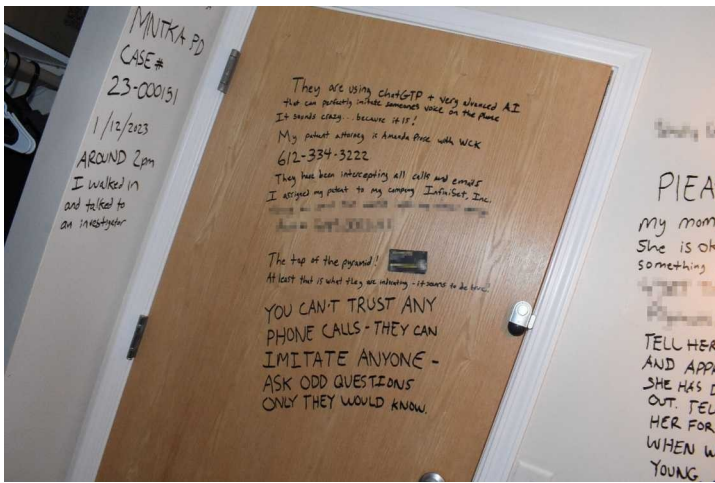 MNTKA PD
CASE#
23-000151
1/12/2023
AROUND 2pm
I walked in
and talked to
an investigator
They are using ChatGTP + very advanced AI
that can perfectly imitate someones voice on the phone
It sounds crazy... because it IS!
My patent attorney is Amanda Prose with WCK
612-334-3222
They have been intercepting all calls and emails
I assigned my patent to my company InfiniSet, Inc.
The top of the pyramid!
At least that is what they are indicating - it seems to be here!
YOU CAN'T TRUST ANY
PHONE CALLS - THEY CAN
IMITATE ANYONE -
ASK ODD QUESTIONS
ONLY THEY WOULD KNOW.
PlEA
My mom
She is ok
something
TELL HER
AND APPA
SHE HAS
OUT. TEL
HER FOR
WHEN W
YOUNG